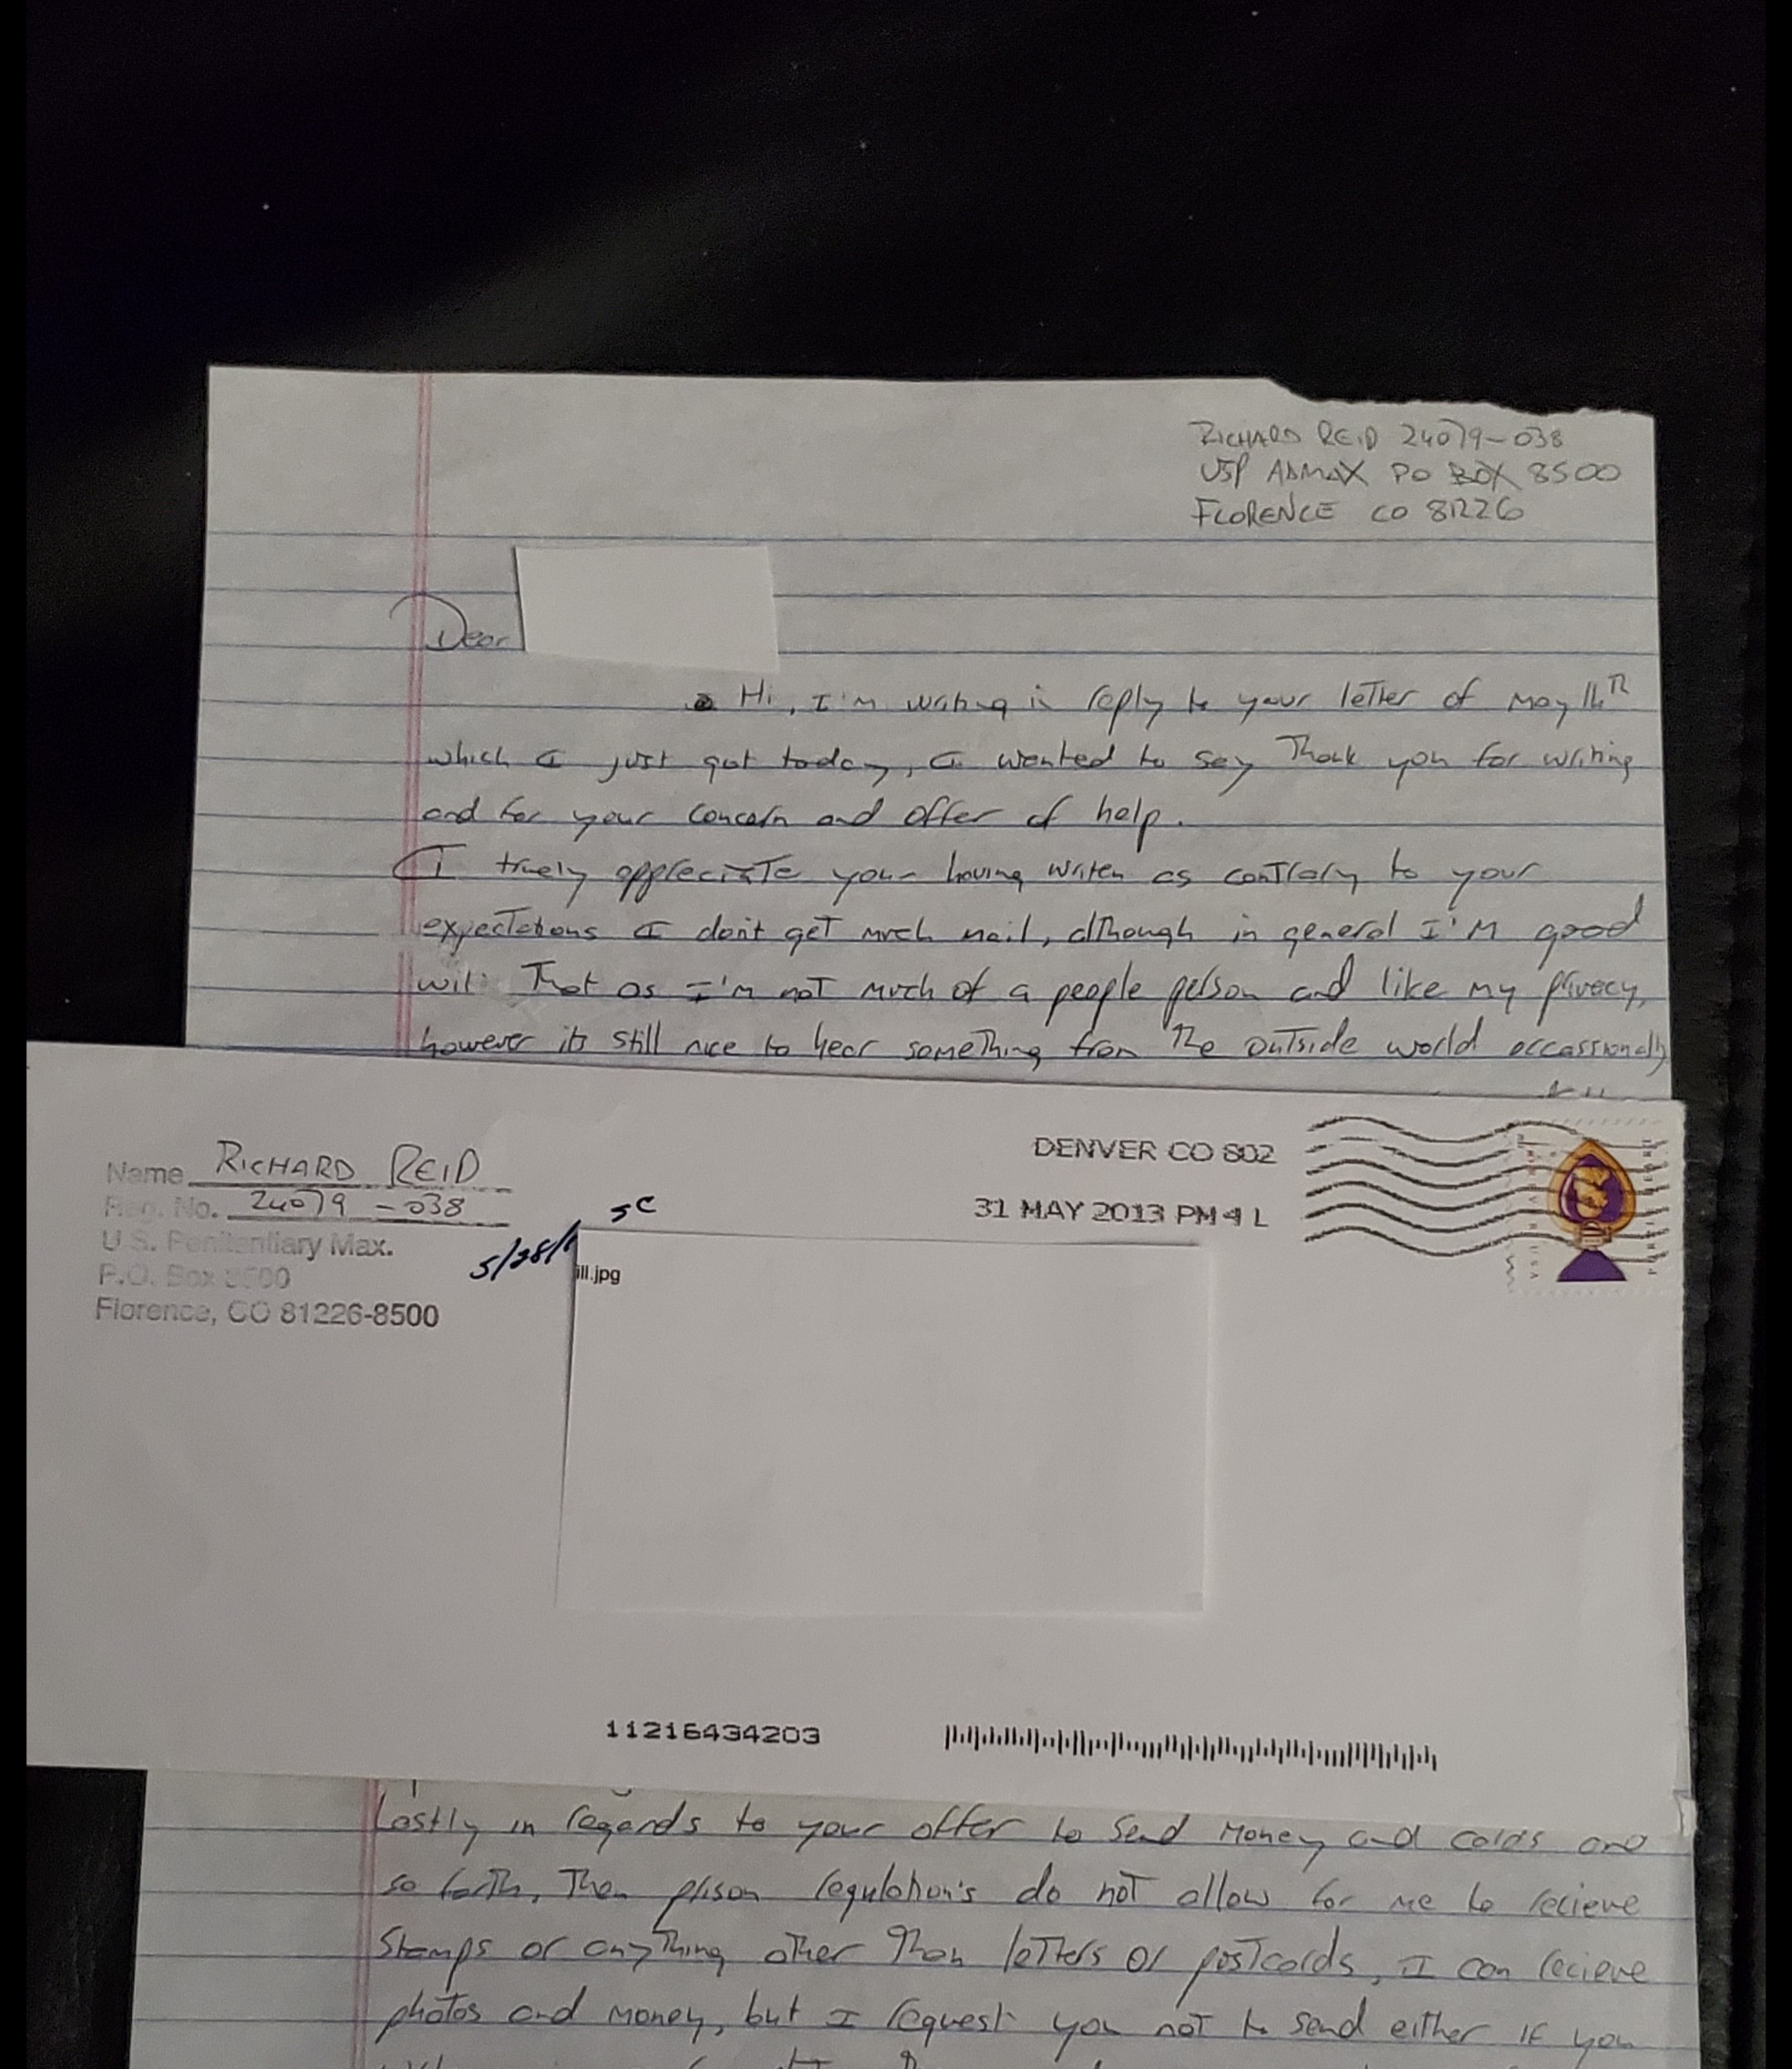 RICHARD REID 24079-038
USP ADMAX PO BOX 8500
FLORENCE CO 81226
Dear
Hi, I'm writing in reply to your letter of May 16th
which I just got today, I wanted to say Thank you for writing
and for your concern and offer of help.
I truely appreciate your having writen as contrary to your
expectations I don't get much mail, although in general I'm good
wit That as I'm not much of a people person and like my privacy,
however its still nice to hear something from the outside world occassionally
Name RICHARD REID
Reg. No. 24079-038
U.S. Penitentiary Max.
P.O. Box 8500
Florence, CO 81226-8500
5/28/
SC
ill.jpg
DENVER CO 802
31 MAY 2013 PM 4 L
11216434203
Lastly in regards to your offer to send money and cards and
so forth, Then prison regulation's do not allow for me to recieve
stamps or anything other Than letters or postcards, I can recieve
photos and money, but I request you not to send either if you